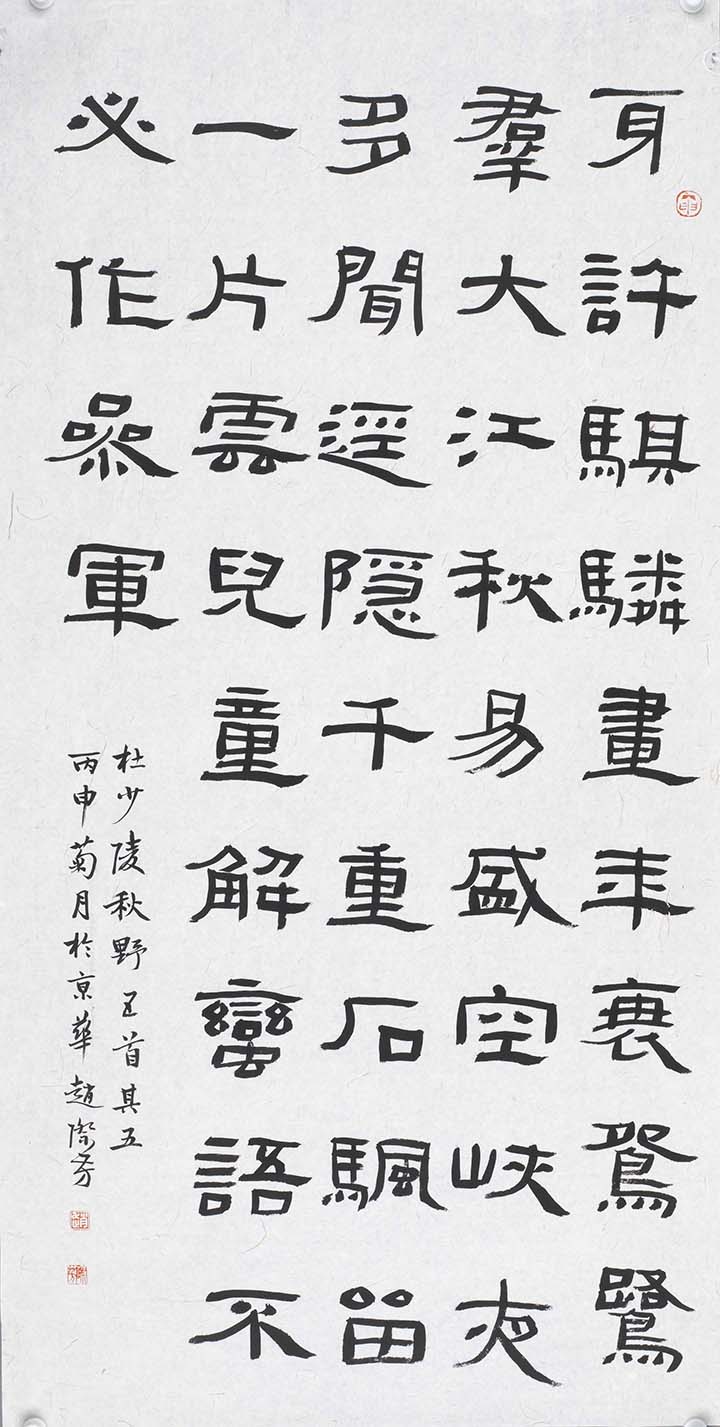 身許騏驎畫年衰鴛鷺
羣大江秋易盛空峽夜
多聞逕隐千重石颿留
一片雲兒童解蠻語不
必作參軍
杜少陵秋野五首其五
丙申菊月於京華趙際芳